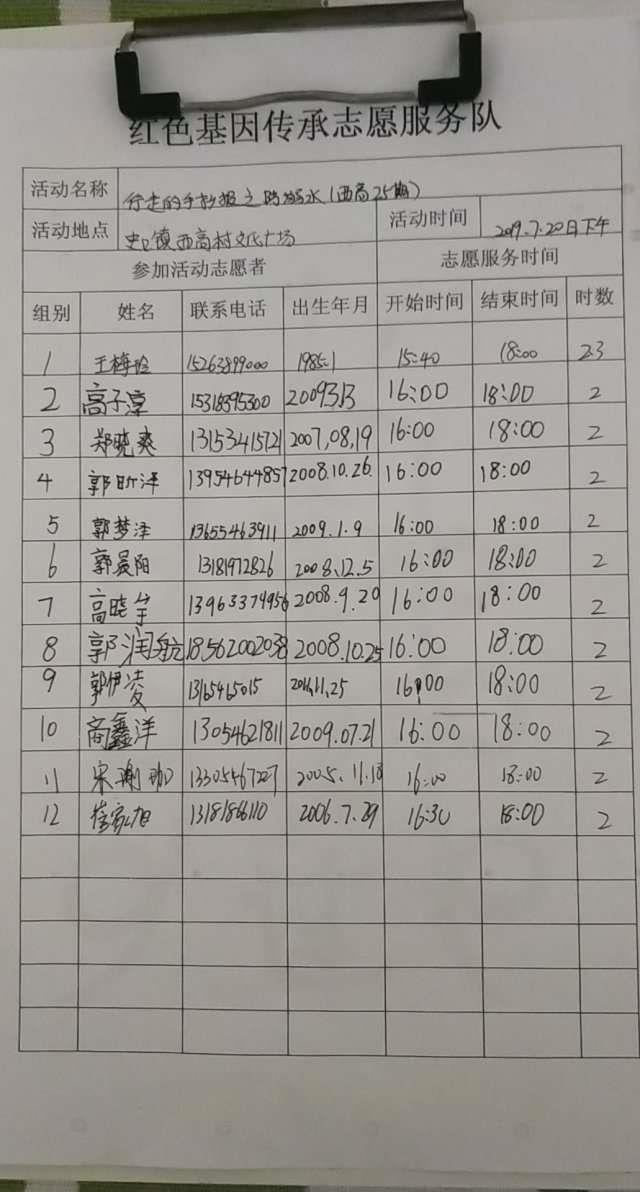 红色基因传承志愿服务队
活动名称 行走的手抄报之防溺水(西高25期)
活动地点 史口镇西高村文化广场 活动时间 2019.7.20日下午
参加活动志愿者 志愿服务时间
组别 姓名 联系电话 出生年月 开始时间 结束时间 时数
1 王梅玲 15263899000 1985.1 15:40 18:00 2.3
2 高子淳 15318395300 2009313 16:00 18:00 2
3 郑晓爽 13153415721 2007,08,19 16:00 18:00 2
4 郭昕泽 13954644857 2008.10.26. 16:00 18:00 2
5 郭梦泽 13655463911 2009.1.9 16:00 18:00 2
6 郭晨阳 13181972826 2008.12.5 16:00 18:00 2
7 高晓宇 13963374956 2008.9.20 16:00 18:00 2
8 郭润航 18562002038 2008.10.25 16:00 18:00 2
9 郭伊凌 13165465015 2011.11.25 16:00 18:00 2
10 高鑫洋 13054621811 2009.07.21 16:00 18:00 2
11 宋 13305467227 2005.11.18 16:00 18:00 2
12 家旭 13181866110 2006.7.29 16:30 18:00 2